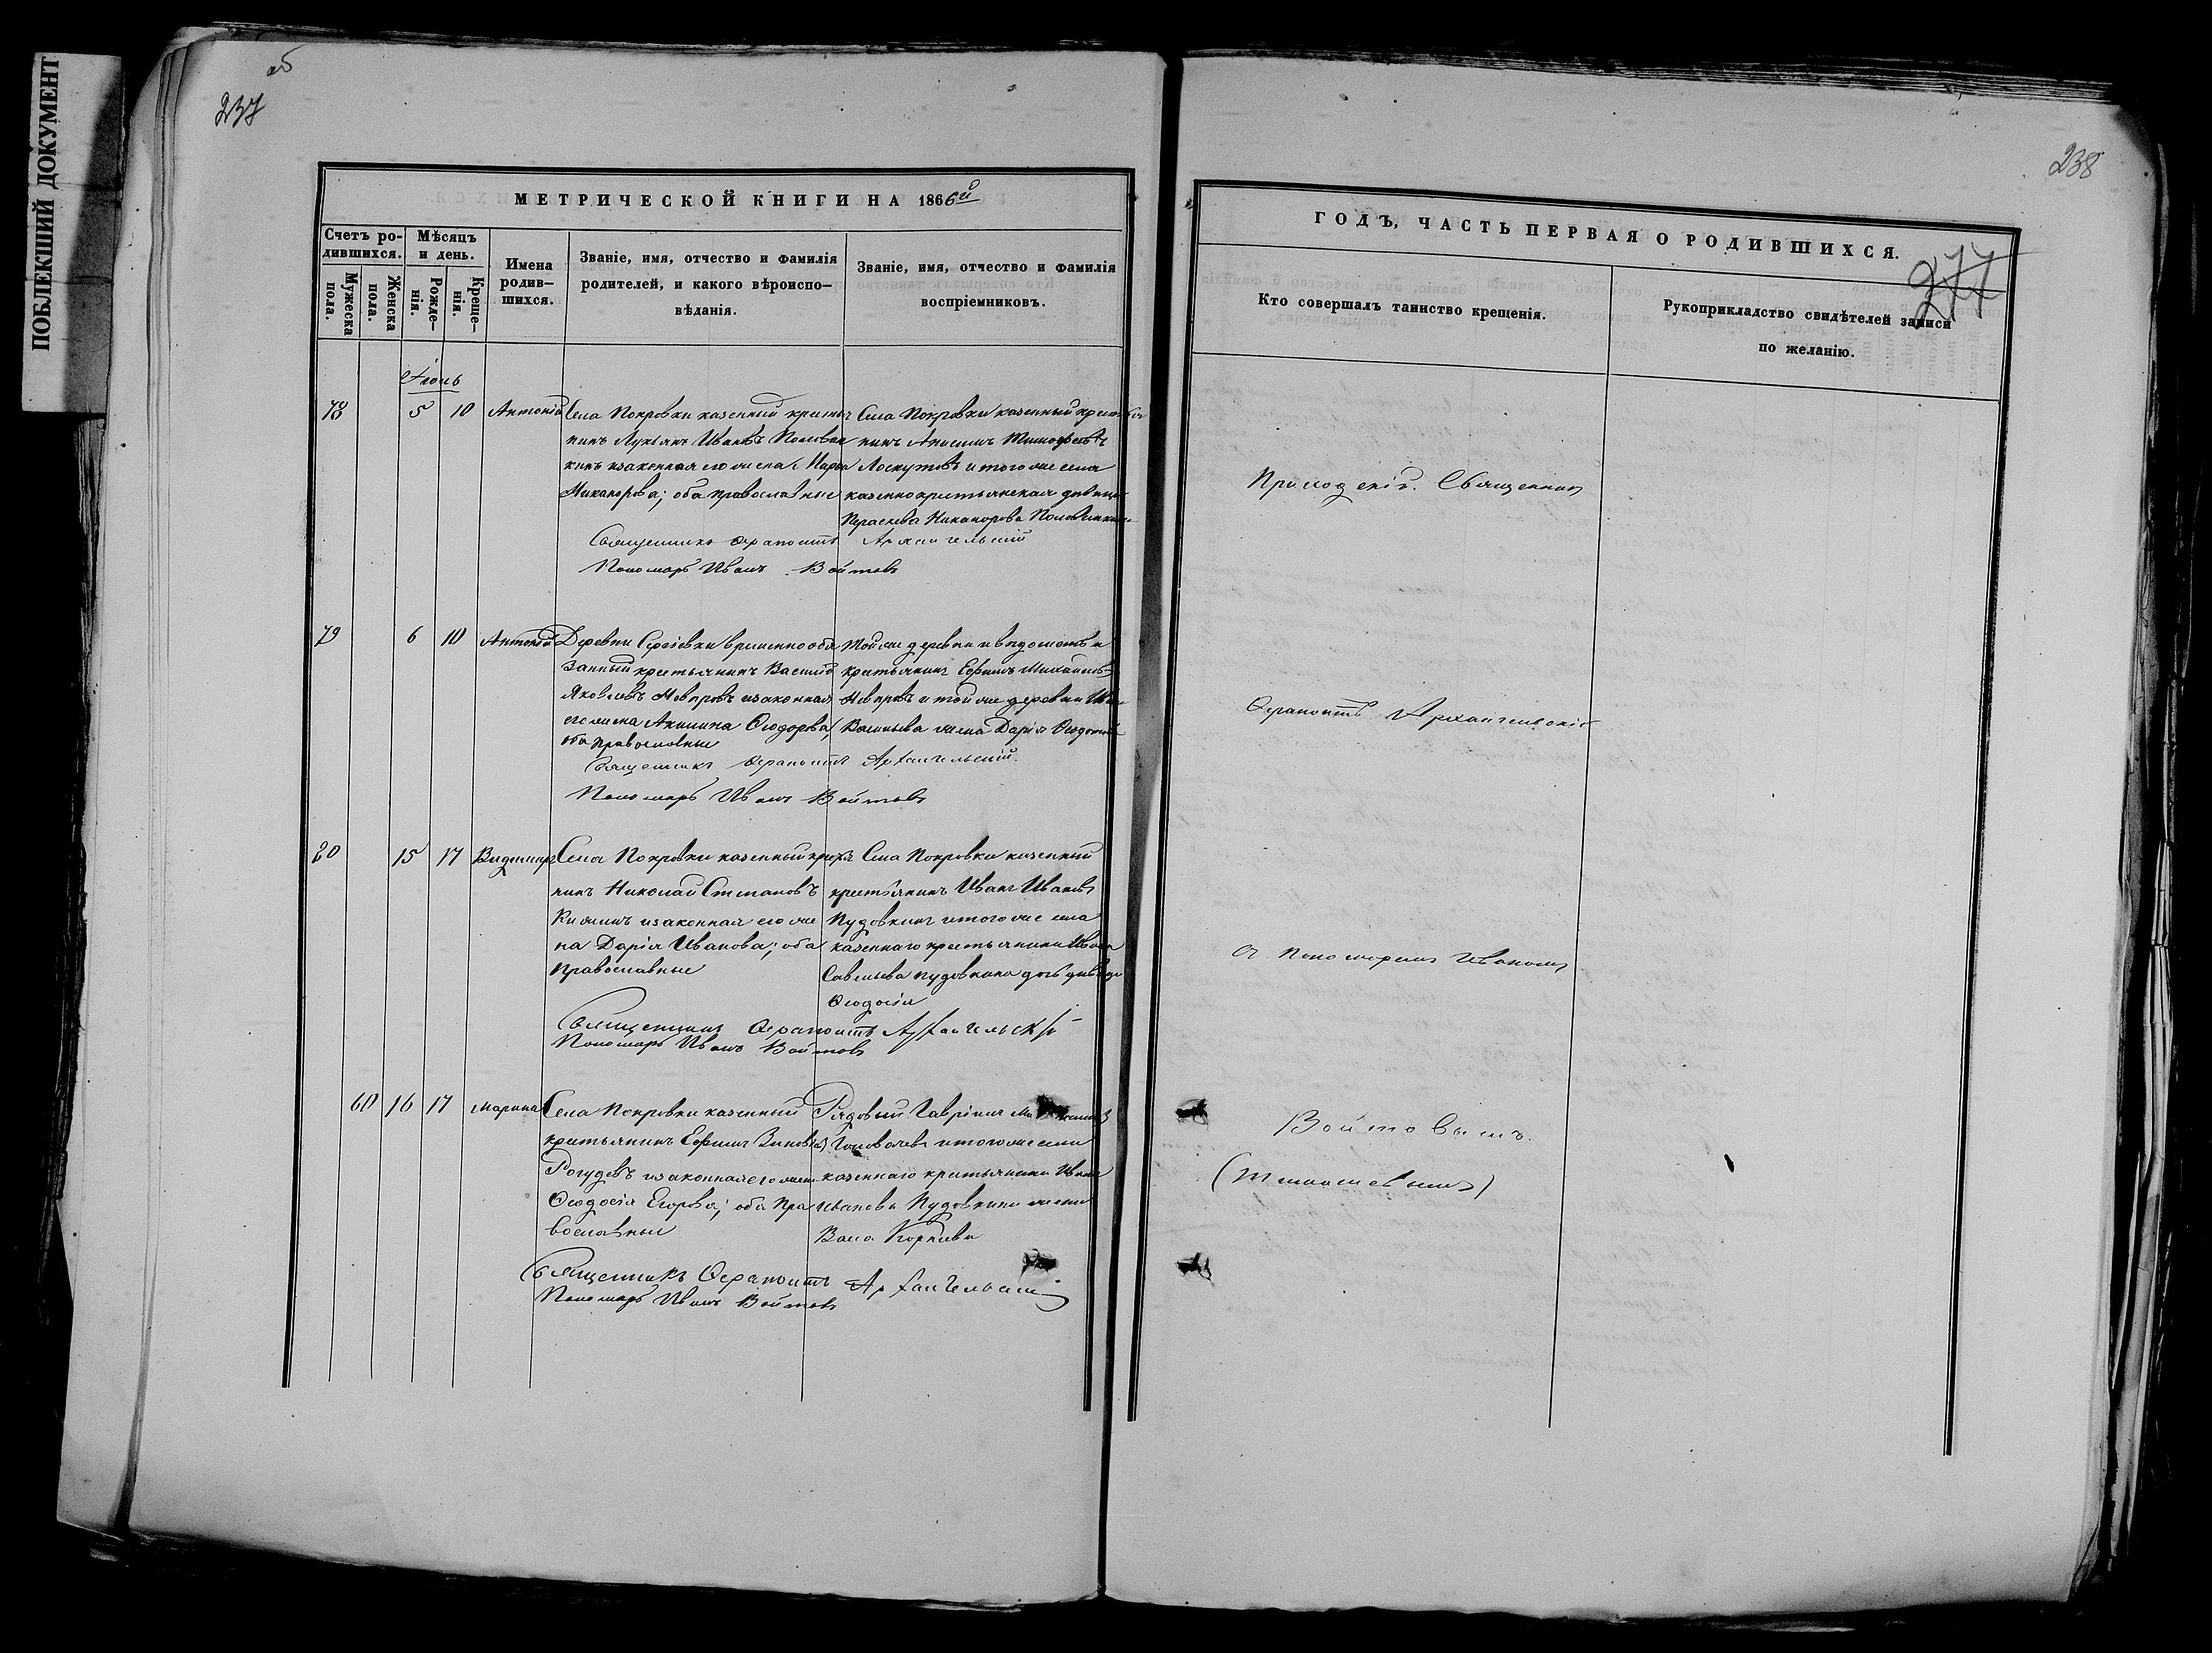 ПОБЛЕКШИЙ ДОКУМЕНТ
об
237
238
277
МЕТРИЧЕСКОЙ КНИГИ НА 1866й
ГОДЪ, ЧАСТЬ ПЕРВАЯ О РОДИВШИХСЯ.
Счетъ ро-
дившихся.
Мужеска
пола.
Женска
пола.
Мѣсяцъ
и день.
Рожде-
нія.
Креще-
нія.
Имена
родив-
шихся.
Званіе, имя, отчество и фамилія
родителей, и какого вѣроиспо-
вѣданія.
Званіе, имя, отчество и фамилія
воспріемниковъ.
Кто совершалъ таинство крещенія.
Рукоприкладство свидѣтелей записи
по желанію.
Іюнь
78 5 10 Антоній
Села Покровки казенный крестья
нинъ Лукьянъ Ивановъ Половин
кинъ изаконная его жена Марѳа
Никанорова; оба православные
Села Покровки казенный крестья
нинъ Анисимъ Тимофеевъ
Лоскутовъ и того же села
казеннокрестьянская девица
Параскева Никанорова Половинкина
Священникъ Ѳерапонтъ Архангельскій
Пономарь Иванъ Войтовъ
79 6 10 Антоній
Деревни Сергіевки временнообя
занный крестьянинъ Василій
Яковлевъ изаконная
его жена Акилина Ѳеодорова,
оба православные
Той же деревни и вѣдомства
крестьянинъ Ефимъ Михайловъ
и той же деревни
Васильева жена Дарія
Священникъ Ѳерапонтъ Архангельскій.
Пономарь Иванъ Войтовъ
80 15 17 Владимиръ
Села Покровки казенный крестья
нинъ Николай Степановъ
изаконная его же
на Дарія Иванова; оба
Православные
Села Покровки казенный
крестьянинъ Иванъ Ивановъ
Пудовкинъ итого же села
казеннаго крестьянина Ивана
Савельева Пудовкина дочь девица
Ѳеодосія
Священникъ Ѳерапонтъ Архангельскій
Пономарь Иванъ Войтовъ
60 16 17 Марина
Села Покровки казенный
крестьянинъ Ефимъ Зиновіевъ
Рогудевъ изаконная его жена
Ѳеодосія Егорова; оба Пра
вославные
Рядовый Гавріилъ
итого же села
казеннаго крестьянина Ивана
Иванова Пудовкина жена
Васа Корнева
Священникъ Ѳерапонтъ Архангельскій
Пономарь Иванъ Войтовъ
Приходскій. Священникъ
Ѳерапонтъ Архангельскій
съ Пономаремъ Иваномъ
Войтовымъ.